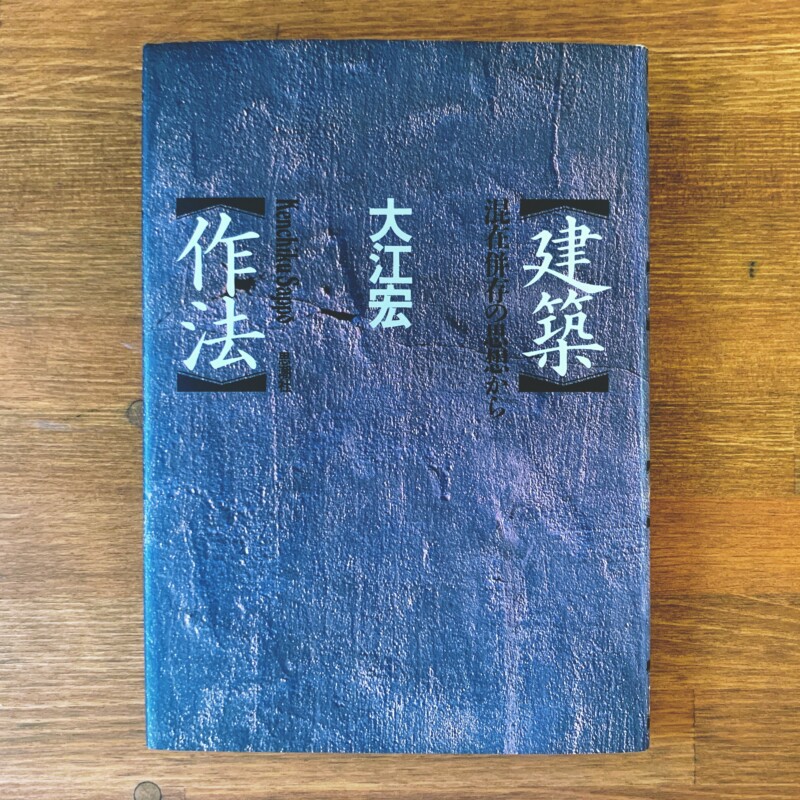 【建築】
混在併存の思想から
大江宏
Kenchiku Sappō
【作法】
思潮社